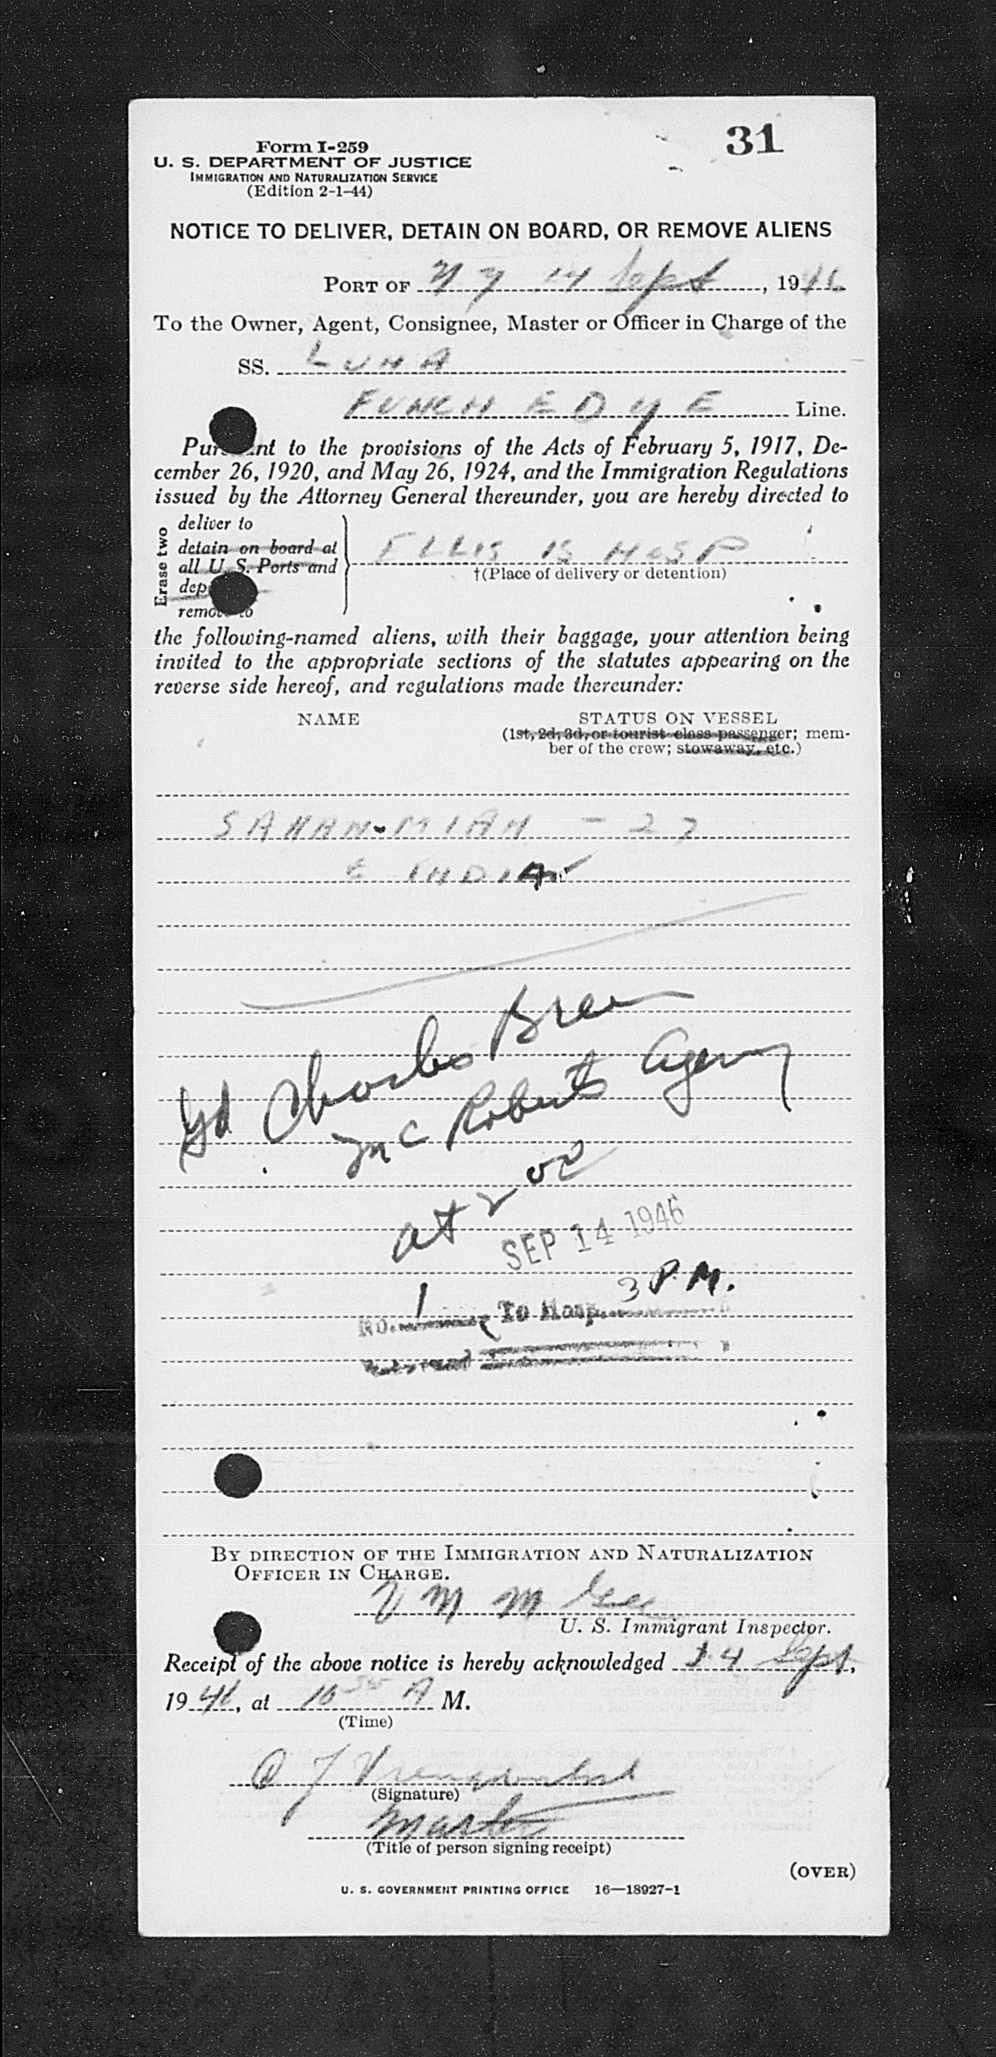 31
Form I-259
U. S. DEPARTMENT OF JUSTICE
IMMIGRATION AND NATURALIZATION SERVICE
(Edition 2-1-44)
NOTICE TO DELIVER, DETAIN ON BOARD, OR REMOVE ALIENS
PORT OF N Y 14 Sept, 1946
To the Owner, Agent, Consignee, Master or Officer in Charge of the
SS. LUNA
FUNCH EDYE Line.
Pursuant to the provisions of the Acts of February 5, 1917, De-
cember 26, 1920, and May 26, 1924, and the Immigration Regulations
issued by the Attorney General thereunder, you are hereby directed to
Erase two
deliver to
detain on board at
all U. S. Ports and
remove to
ELLIS IS HOSP
†(Place of delivery or detention)
the following-named aliens, with their baggage, your attention being
invited to the appropriate sections of the statutes appearing on the
reverse side hereof, and regulations made thereunder:
NAME STATUS ON VESSEL
(1st, 2d, 3d, or tourist class passenger; mem-
ber of the crew; stowaway, etc.)
SAHAN MIAH - 27
E INDIA
Charles
Mc Roberts Agency
at 2 00
SEP 14 1946
No. 1 To Hosp. 3 P.M.
BY DIRECTION OF THE IMMIGRATION AND NATURALIZATION
OFFICER IN CHARGE.
U. S. Immigrant Inspector.
Receipt of the above notice is hereby acknowledged 14 Sept,
1946, at 10 A M.
(Time)
(Signature)
Master
(Title of person signing receipt)
(OVER)
U. S. GOVERNMENT PRINTING OFFICE 16—18927-1